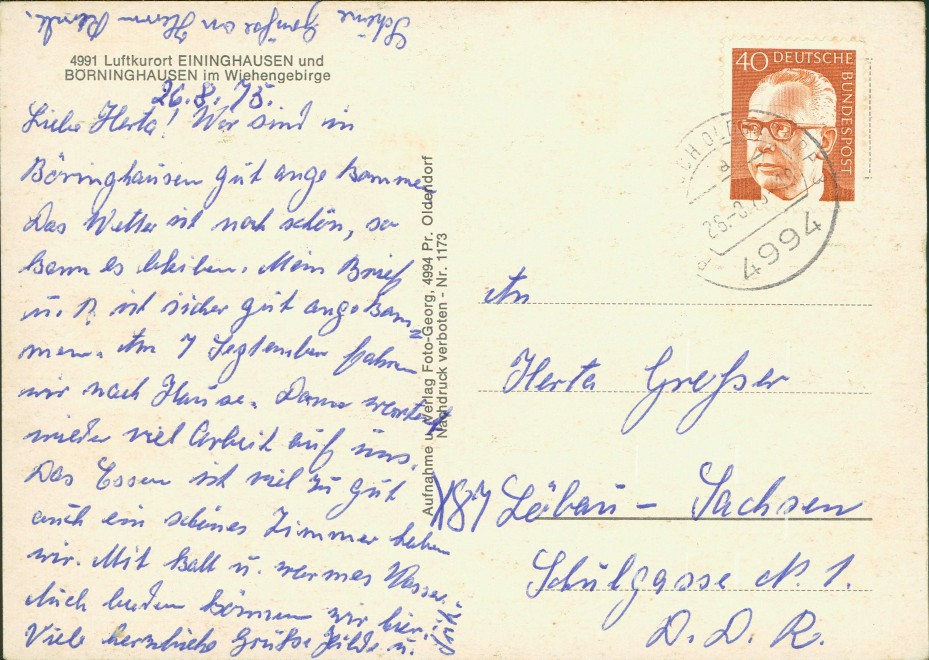 Schöne Grüße an Herrn
4991 Luftkurort EININGHAUSEN und
BÖRNINGHAUSEN im Wiehengebirge
26.8.75.
Liebe Herta! Wir sind in
Börninghausen gut ange kommen
Das Wetter ist noch schön, so
kann es bleiben. Mein Brief
u. P. ist sicher gut angekom=
men. Am 7 September fahren
wir nach Hause. Dann wartet
wieder viel Arbeit auf uns.
Das Essen ist viel zu gut
auch ein schönes Zimmer haben
wir. Mit Balk u. warmes Wasser.
Auch baden können wir hier.
Viele herzliche Grüße Hilde u.
Aufnahme u. Verlag Foto-Georg, 4994 Pr. Oldendorf
Nachdruck verboten - Nr. 1173
40 DEUTSCHE
BUNDESPOST
26.-8.75
4994
An
Herta Greßer
787 Löbau - Sachsen
Schulgasse N. 1.
D. D. R.